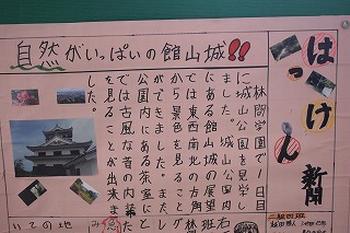 自然がいっぱいの館山城!!
はっけん
新聞
林間学園で1日目
に城山公園を見学し
ました。城山公園内
にある館山城の展望
では東西南北の方角
から景色を見ること
ができました。また
公園内にある茶室に
では古風な昔の内装
を見ることが出来ま
した。
二組四班
いての地